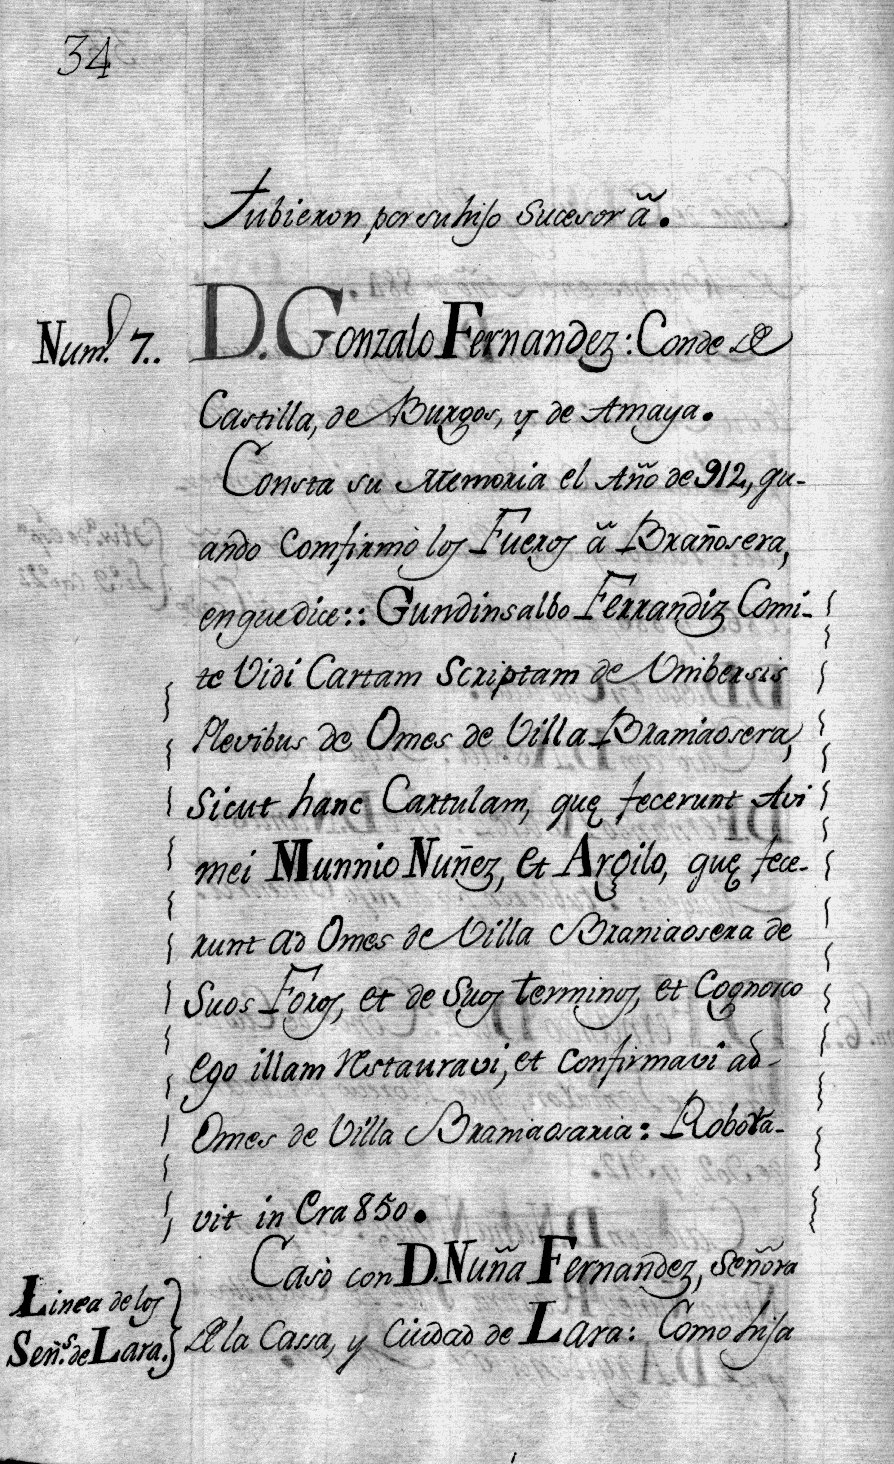 34
Tubieron por su hijo Sucesor â.
Num.º 7..
D. Gonzalo Fernandez: Conde de
Castilla, de Burgos, y de Amaya.
Consta su Memoria el Año de 912, qu-
ando Comfirmò los Fueros â Brañosera,
en que dice:: Gundinsalbo Ferrandiz Comi-
te Vidi Cartam Scriptam de Vnibersis
Plevibus de Omes de Villa Braniaosera,
Sicut hanc Cartulam, quę fecerunt Avi
mei Munnio Nuñez, et Argilo, quę fece-
runt ad Omes de Villa Braniaosera de
Suos Foros, et de Suos terminos, et Cognosco
ego illam restauravi, et Confirmavi ad-
Omes de Villa Braniaosaria: Robora-
vit in Era 850.
Casò con D. Nuña Fernandez, Señora
Linea de los
Señ.s de Lara.
de la Cassa, y Ciudad de Lara: Como hija